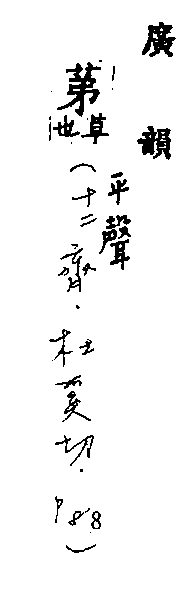 廣韻
平聲
苐
草
(十二齊．杜奚切．P88)